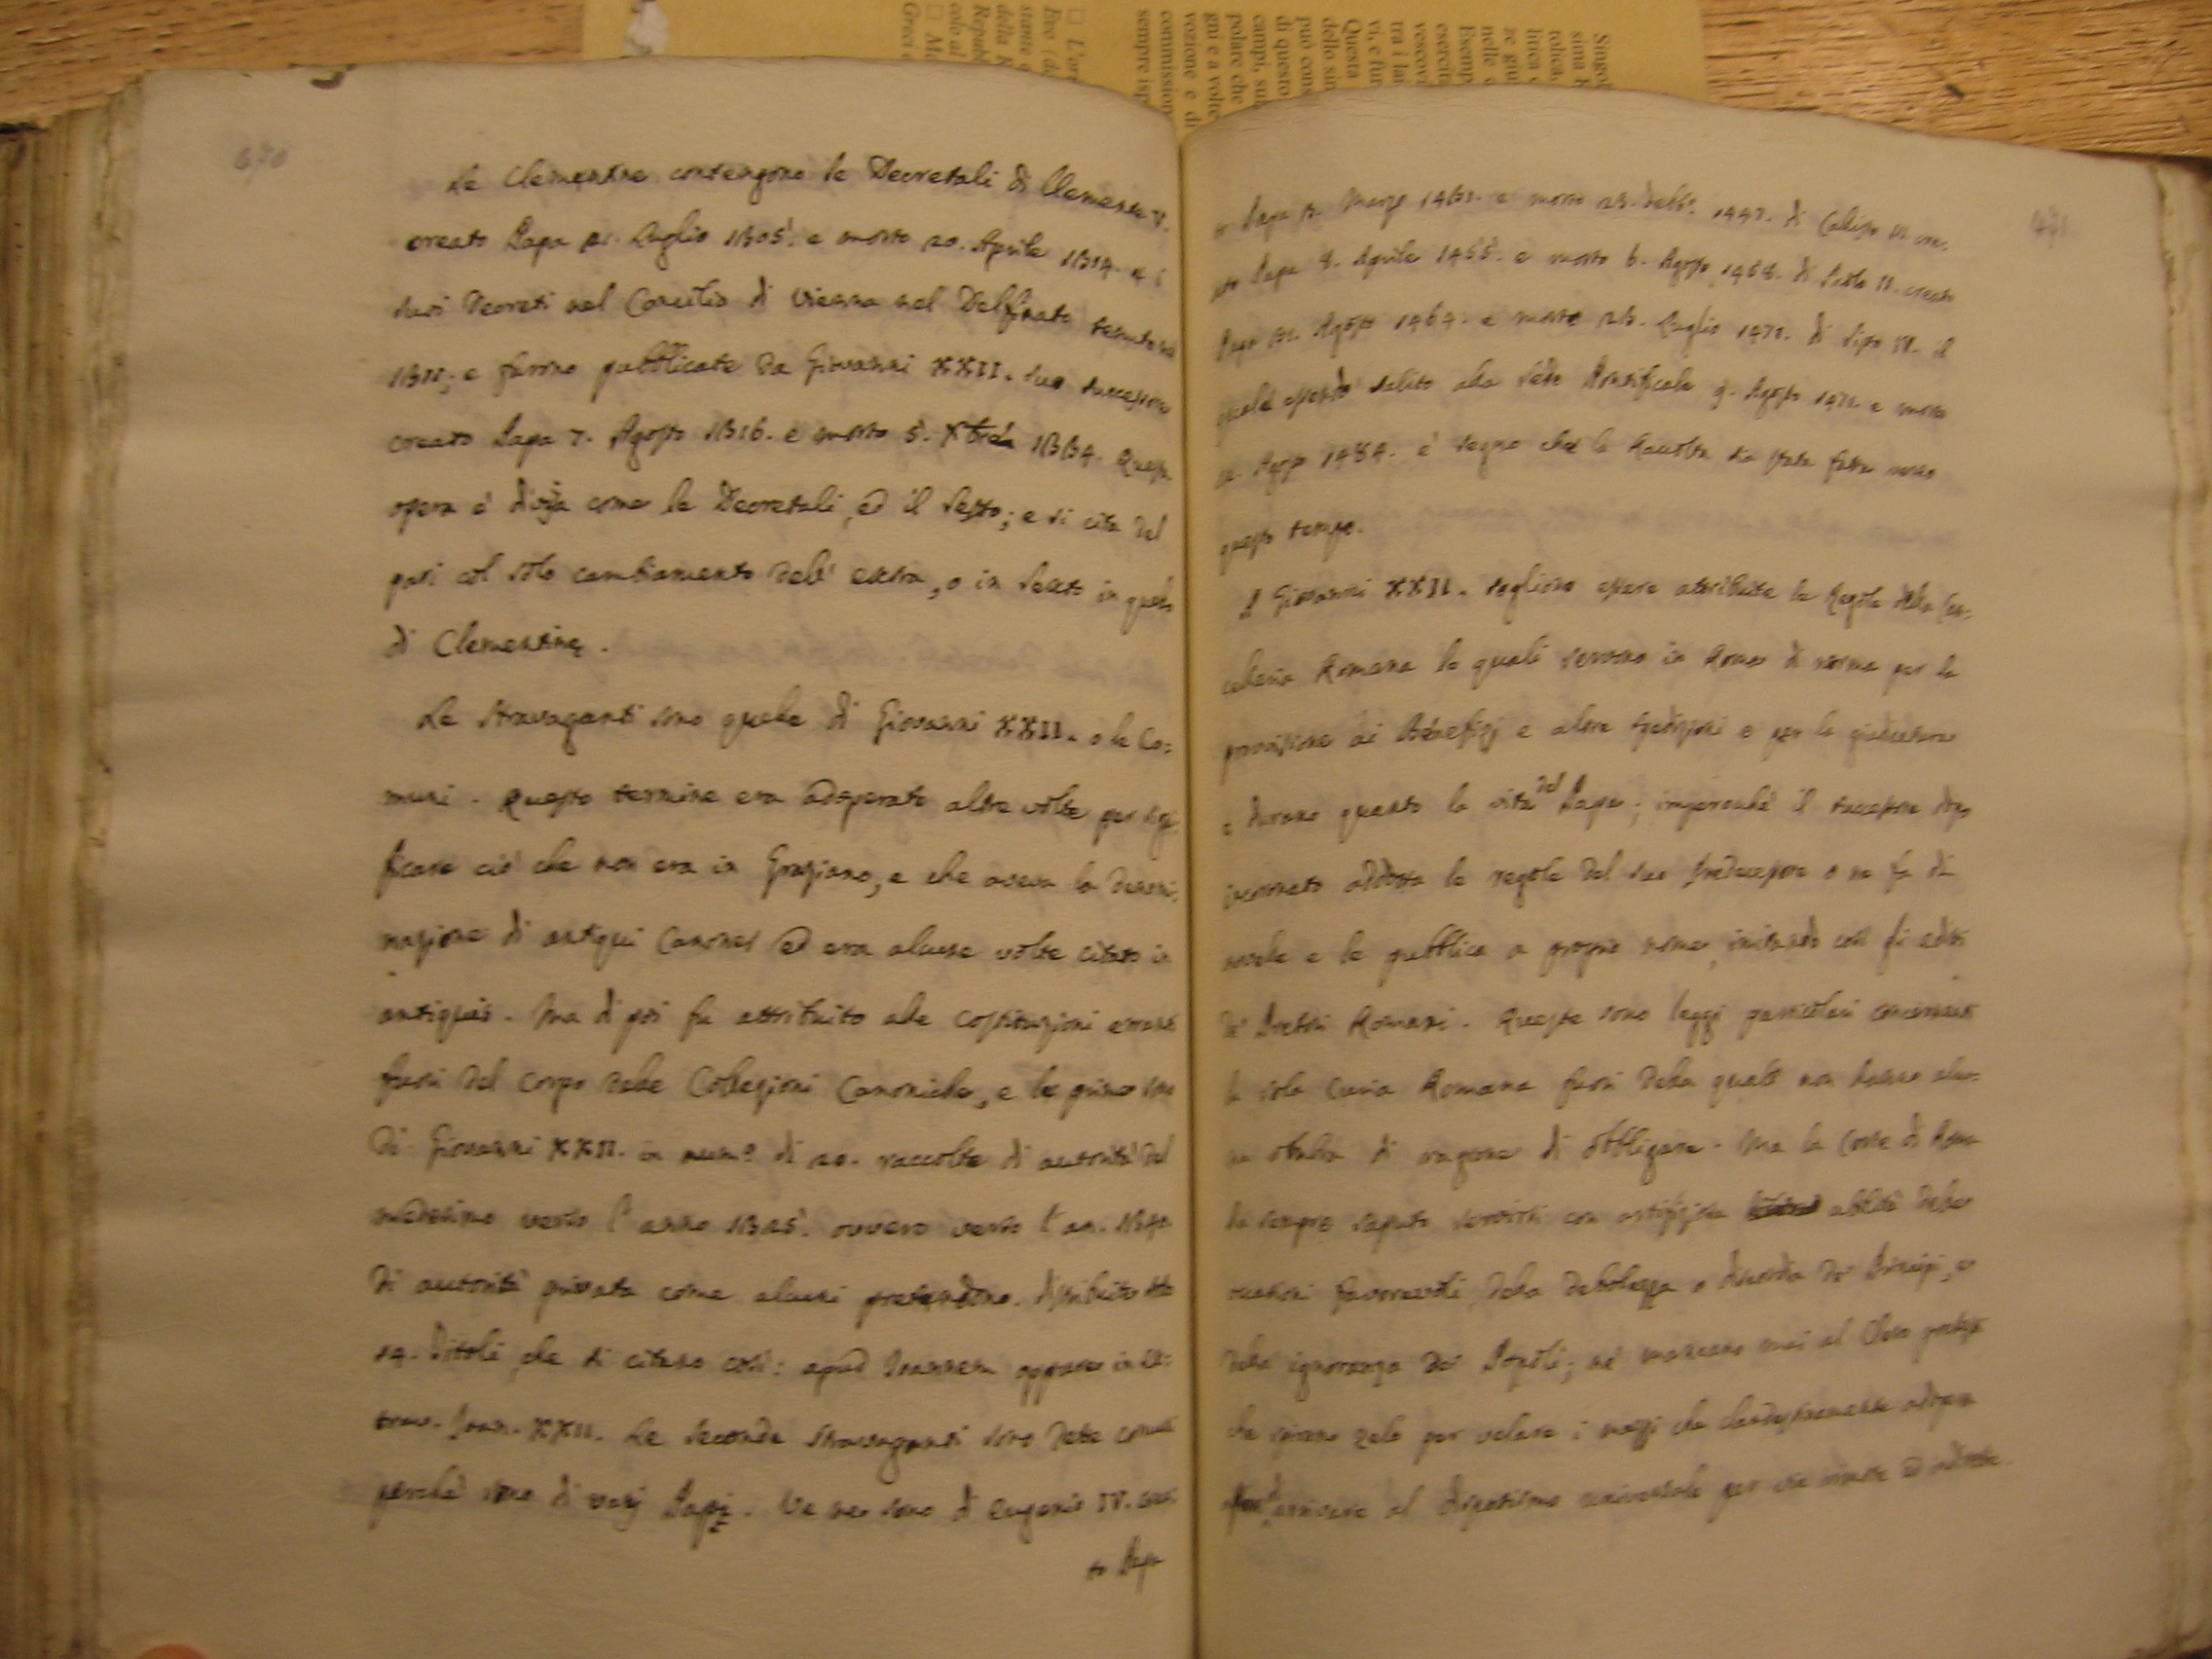 Singol
sima R
tolica,
litica e
ze giu
nelle c
Esemp
esercit
vescovi
tra i lai
vi, e fur
Questa
dello sin
può cons
di questo
campi, sul
polare che
gni e a volte
vozione e di
commission
sempre isp
□ L'or
Evo (de
stante c
della R
Repubb
colo al
□ Mo
Greci e
670
Le Clementine contengono le Decretali di Clemente V.
creato Papa 21. Luglio 1305. e morto 20. Aprile 1314. e i
suoi Decreti nel Concilio di Vienna nel Delfinato tenuto nel
e furono pubblicate da Giovanni XXII. suo successore
creato Papa 7. Agosto 1316. e morto 5. Xbre 1334. Questa
opera è divisa come le Decretali, ed il Sesto; e si cita del
pari col solo cambiamento dell' extra, o in Sexto in quello
di Clementine.
Le Stravaganti sono quelle di Giovanni XXII. o le Co-
muni. Questo termine era adoperato altre volte per signi-
ficare ciò che non era in Graziano, e che aveva la denomi-
nazione di antiqui Canones ed era alcune volte citato in
antiquis. Ma di poi fu attribuito alle Costituzioni erranti
fuori del Corpo delle Collezioni Canoniche, e le prime sono
Di Giovanni XXII. in num.o di 20. raccolte di autorità del
medesimo verso l'anno 1325. ovvero verso l'an. 1340.
di autorità privata come alcuni pretendono. distribuite sotto
14. Titoli, che si citano così: apud Joannem oppure in Ex-
trav. Joan. XXII. Le Seconde Stravaganti sono dette comuni
perchè sono di varj Papi. Ve ne sono di Eugenio IV. crea-
to Papa
671
to Papa 3. Marzo 1431. e morto 23. Febb.o 1447. di Calisto III. cre-
ato Papa 8. Aprile 1455. e morto 6. Agosto 1458. di Paolo II. creato
Papa 31. Agosto 1464. e morto 25. Luglio 1471. di Sisto IV. il
quale essendo salito alla Sede Pontificale 9. Agosto 1471. e morto
12. Agosto 1484. è segno che la Raccolta sia stata fatta verso
questo tempo.
A Giovanni XXII. sogliono essere attribuite le Regole della Can-
celleria Romana le quali servono in Roma di norma per la
provisione dei Benefizj e altre spedizioni e per la giudicatura
e durano quanto la vita del Papa; imperocchè il successore dopo
incoronato addotta le regole del suo Predecessore o ne fa di
novelle e le pubblica a proprio nome, imitando così gli editti
de' Pretori Romani. Queste sono leggi particolari concernenti
la sola Curia Romana fuori della quale non hanno alcu-
na di ragione di obbligare. Ma la Corte di Roma
ha sempre saputo servirsi con abilità delle
occasioni favorevoli, della debolezza o discordia de' Principi, e
della ignoranza dei Popoli; nè mancano mai al Clero pretesti
che spirano zelo per velare i mezzi che clandestinamente adopra
di arrivare al dispotismo universale per vie rimote ed indirette.